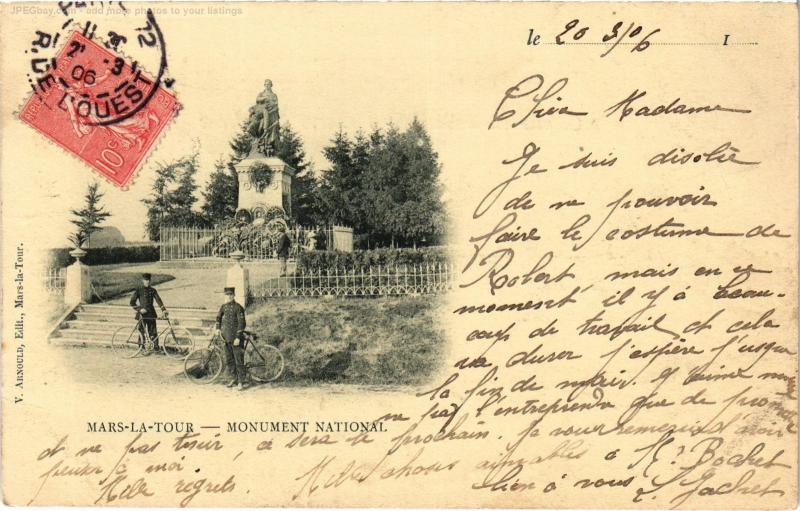 JPEGbay.com - add more photos to your listings
12
11 30
2 . 3
06
R. DE L'OUEST
10c
le 20 3/06 1
Chère Madame
Je suis désolée
de ne pouvoir
faire le costume de
Robert mais en ce
moment il y a beau-
coup de travail et cela
va durer j'espère j'usque
la fin de mai. J'aime
ne pas l'entreprendre que de promettre
et ne pas tenir, ce sera le prochain. Je vous remercie d'avoir
penser à moi.
Mille regrets. Mille choses aimables à Mr Bochet
bien à vous L. Gachet
V. ARNOULD, Edit., Mars-la-Tour.
MARS-LA-TOUR — MONUMENT NATIONAL